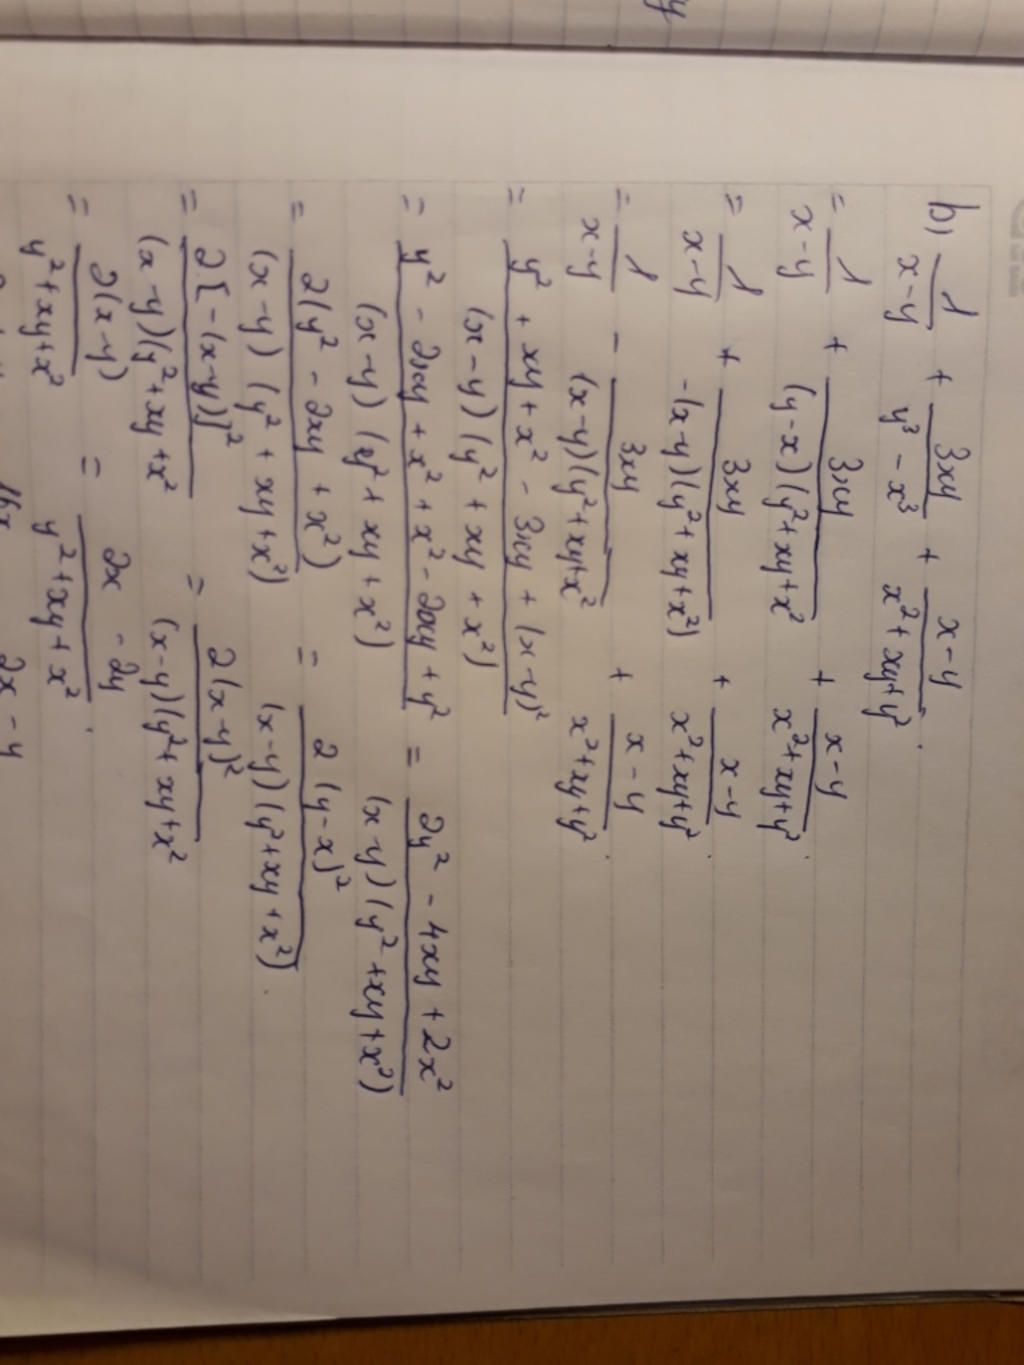 b) \frac{1}{x-y} + \frac{3xy}{y^3-x^3} + \frac{x-y}{x^2+xy+y^2}.
= \frac{1}{x-y} + \frac{3xy}{(y-x)(y^2+xy+x^2} + \frac{x-y}{x^2+xy+y^2}.
= \frac{1}{x-y} + \frac{3xy}{-(x-y)(y^2+xy+x^2)} + \frac{x-y}{x^2+xy+y^2}.
= \frac{1}{x-y} - \frac{3xy}{(x-y)(y^2+xy+x^2} + \frac{x-y}{x^2+xy+y^2}.
= \frac{y^2+xy+x^2-3xy+(x-y)^2}{(x-y)(y^2+xy+x^2)}
= \frac{y^2-2xy+x^2+x^2-2xy+y^2}{(x-y)(y^2+xy+x^2)} = \frac{2y^2-4xy+2x^2}{(x-y)(y^2+xy+x^2)}
= \frac{2(y^2-2xy+x^2)}{(x-y)(y^2+xy+x^2)} = \frac{2(y-x)^2}{(x-y)(y^2+xy+x^2)}.
= \frac{2[-(x-y)]^2}{(x-y)(y^2+xy+x^2} = \frac{2(x-y)^2}{(x-y)(y^2+xy+x^2}
= \frac{2(x-y)}{y^2+xy+x^2} = \frac{2x-2y}{y^2+xy+x^2}.